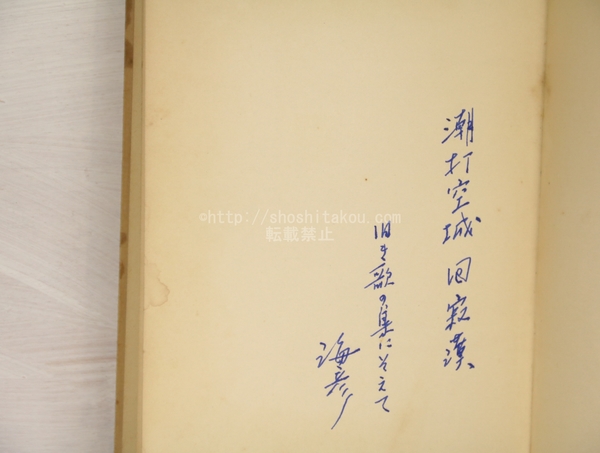 潮打空城回寂漠
旧き歌の集にそえて
海彦
©http://shoshitakou.com
転載禁止